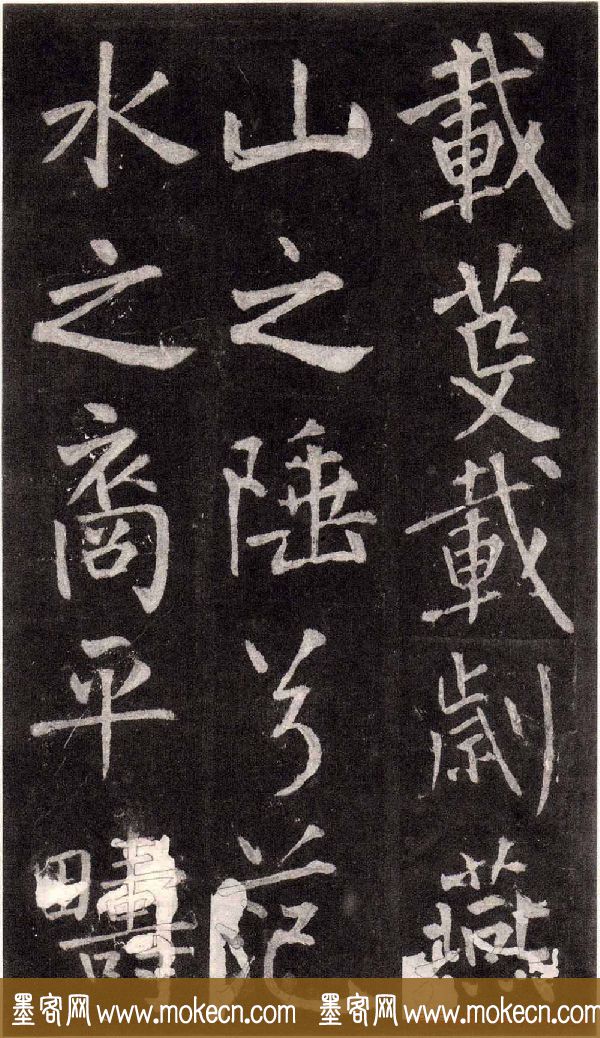 載芟載劌燕
山之陲兮范
水之裔平疇
墨客网 www.mokecn.com 墨客网 www.mokecn.com